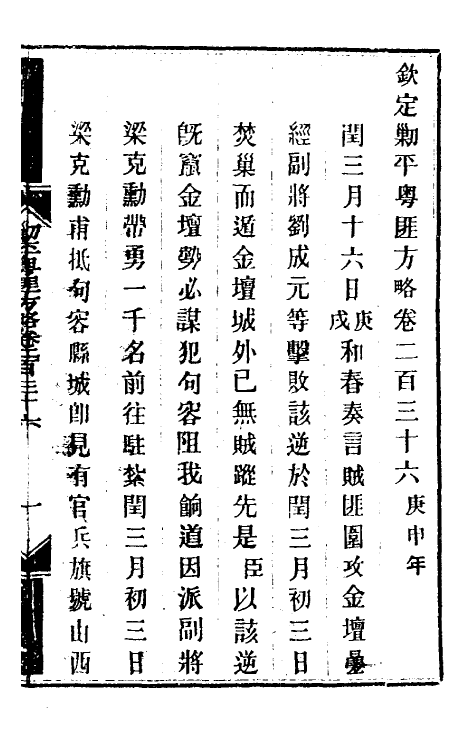 欽定勦平粵匪方略卷二百三十六庚申年
閏三月十六日庚戌和春奏言賊匪圍攻金壇疊
經副將劉成元等擊敗該逆於閏三月初三日
焚巢而遁金壇城外已無賊蹤先是臣以該逆
既竄金壇勢必謀犯句容阻我餉道因派副將
梁克勳帶勇一千名前往駐紮閏三月初三日
梁克勳甫抵句容縣城卽見有官兵旗號山西
勦平粵匪方略卷二百三十六 一